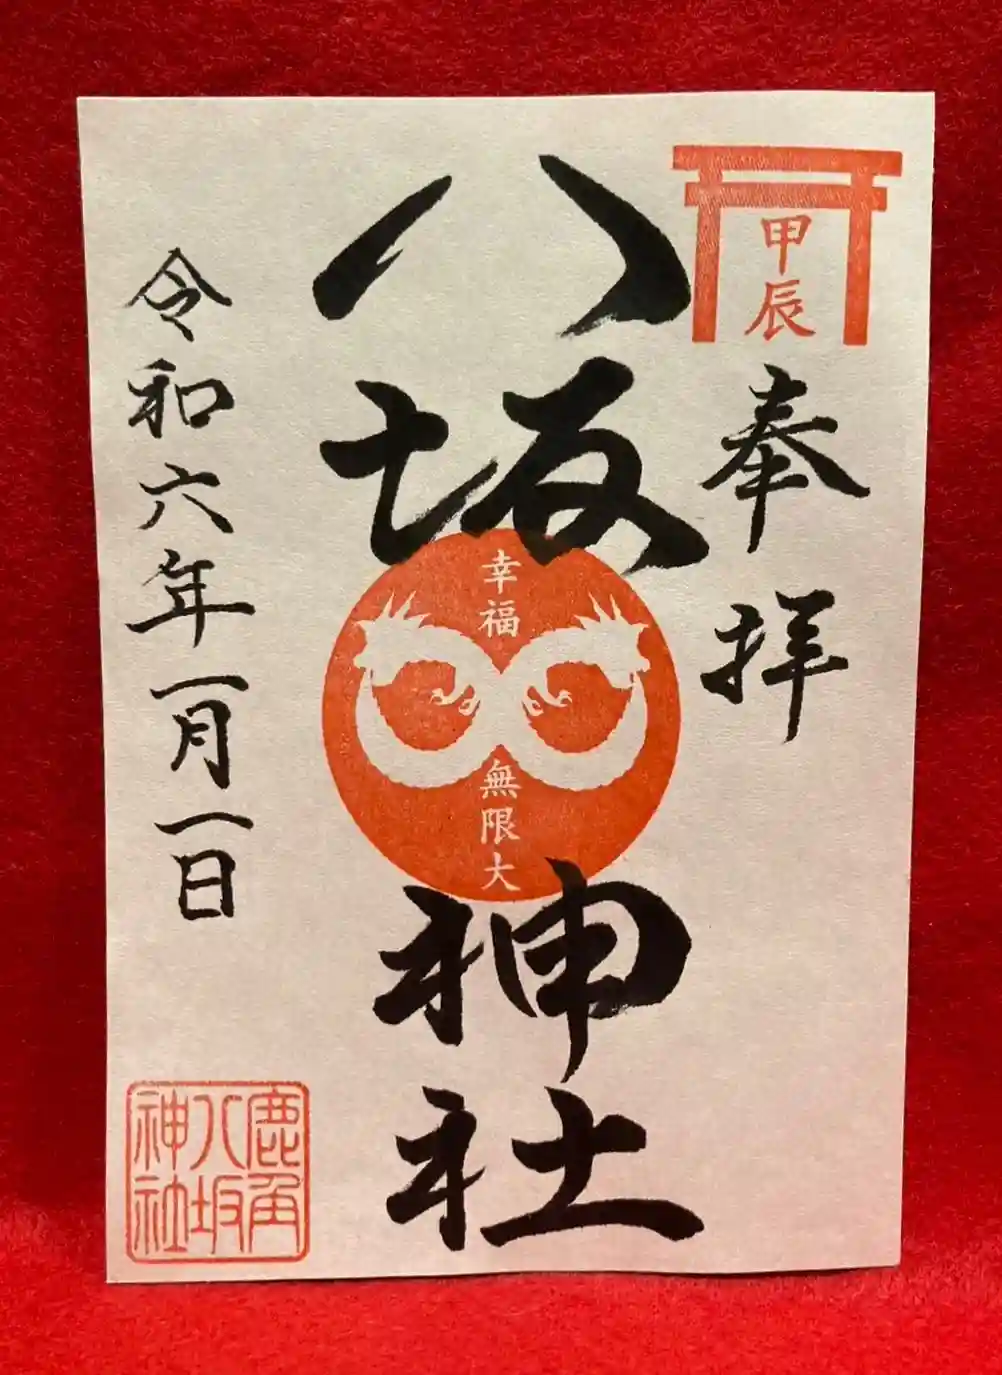 甲辰
奉拝
八坂神社
幸福
無限大
令和六年一月一日
鹿角
八坂
神社